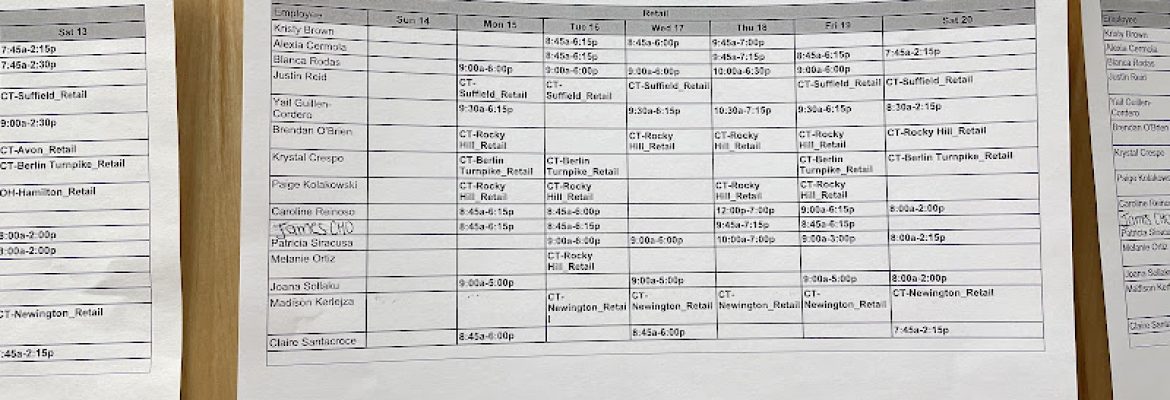 Sat 13
7:45a-2:15p
7:45a-2:30p
CT-Suffield_Retail
9:00a-2:30p
CT-Avon_Retail
CT-Berlin Turnpike_Retail
OH-Hamilton_Retail
8:00a-2:00p
8:00a-2:00p
CT-Newington_Retail
7:45a-2:15p
Retail
Employee Sun 14 Mon 15 Tue 16 Wed 17 Thu 18 Fri 19 Sat 20
Kristy Brown 8:45a-6:15p 8:45a-6:00p 9:45a-7:00p
Alexia Cermola 8:45a-6:15p 9:45a-7:15p 8:45a-6:15p 7:45a-2:15p
Bianca Rodas 9:00a-6:00p 9:00a-6:00p 9:00a-6:00p 10:00a-6:30p 9:00a-6:00p
Justin Reid CT- CT- CT-Suffield_Retail CT-Suffield_Retail CT-Suffield_Retail
Suffield_Retail Suffield_Retail
Yail Guillen- 9:30a-6:15p 9:30a-6:15p 10:30a-7:15p 9:30a-6:15p 8:30a-2:15p
Cordero
Brendan O'Brien CT-Rocky CT-Rocky CT-Rocky CT-Rocky CT-Rocky Hill_Retail
Hill_Retail Hill_Retail Hill_Retail Hill_Retail
Krystal Crespo CT-Berlin CT-Berlin CT-Berlin CT-Berlin Turnpike_Retail
Turnpike_Retail Turnpike_Retail Turnpike_Retail
Paige Kolakowski CT-Rocky CT-Rocky CT-Rocky CT-Rocky
Hill_Retail Hill_Retail Hill_Retail Hill_Retail
Caroline Reinoso 8:45a-6:15p 8:45a-6:00p 12:00p-7:00p 9:00a-6:15p 8:00a-2:00p
8:45a-6:15p 8:45a-6:15p 9:45a-7:15p 8:45a-6:15p
Patricia Siracusa 9:00a-6:00p 9:00a-6:00p 10:00a-7:00p 9:00a-3:00p 8:00a-2:15p
Melanie Ortiz CT-Rocky
Hill_Retail
Joana Sollaku 9:00a-5:00p 9:00a-5:00p 9:00a-5:00p 8:00a-2:00p
Madison Kerlejza CT- CT- CT- CT- CT-Newington_Retail
Newington_Retai Newington_Retail Newington_Retail Newington_Retail
l
Claire Santacroce 8:45a-6:00p 8:45a-6:00p 7:45a-2:15p
Employee
Kristy Brown
Alexia Cermola
Bianca Rodas
Justin Reid
Yail Guillen-
Cordero
Brendan O'Brien
Krystal Crespo
Paige Kolakowski
Caroline Reinos
Patricia Siracus
Melanie Ortiz
Joana Sollaku
Madison Kerl
Claire Santac